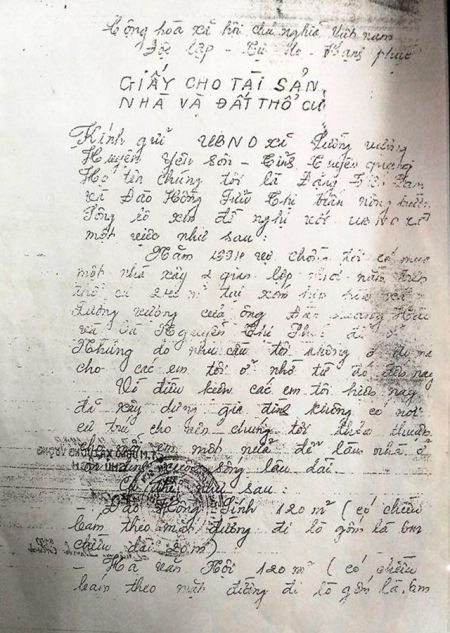 Cộng hòa xã hội chủ nghĩa Việt nam
Độc lập - Tự do - Hạnh phúc
GIẤY CHO TÀI SẢN,
NHÀ VÀ ĐẤT THỔ CƯ
Kính gửi UBND xã Tường vường
Huyện Yên Sơn - Tỉnh Tuyên quang
Họ tên chúng tôi là Đặng
và Đào Hồng
xin đề nghị với UBND xã
một việc như sau:
Năm 1994 vợ chồng tôi có mua
một nhà xây 2 gian lợp nằm trên
thổ cư 240 m² tại xóm xã
của ông
và bà Nguyễn Thị đi ở
Nhưng do nhu cầu tôi không ở
cho các em tôi ở nhờ từ đó đến nay
Về điều kiện các em tôi hiện nay
đã xây dựng gia đình không có nơi
cư trú cho nên chúng tôi thỏa thuận
em một nửa để làm nhà ở
sống lâu dài.
như sau:
Đào Hồng 120 m² (có chiều
bám theo mặt đường đi lò gốm là 6m
chiều dài 20m)
- Hà văn Hồi 120 m² (có chiều
bám theo mặt đường đi lò gốm là 6m